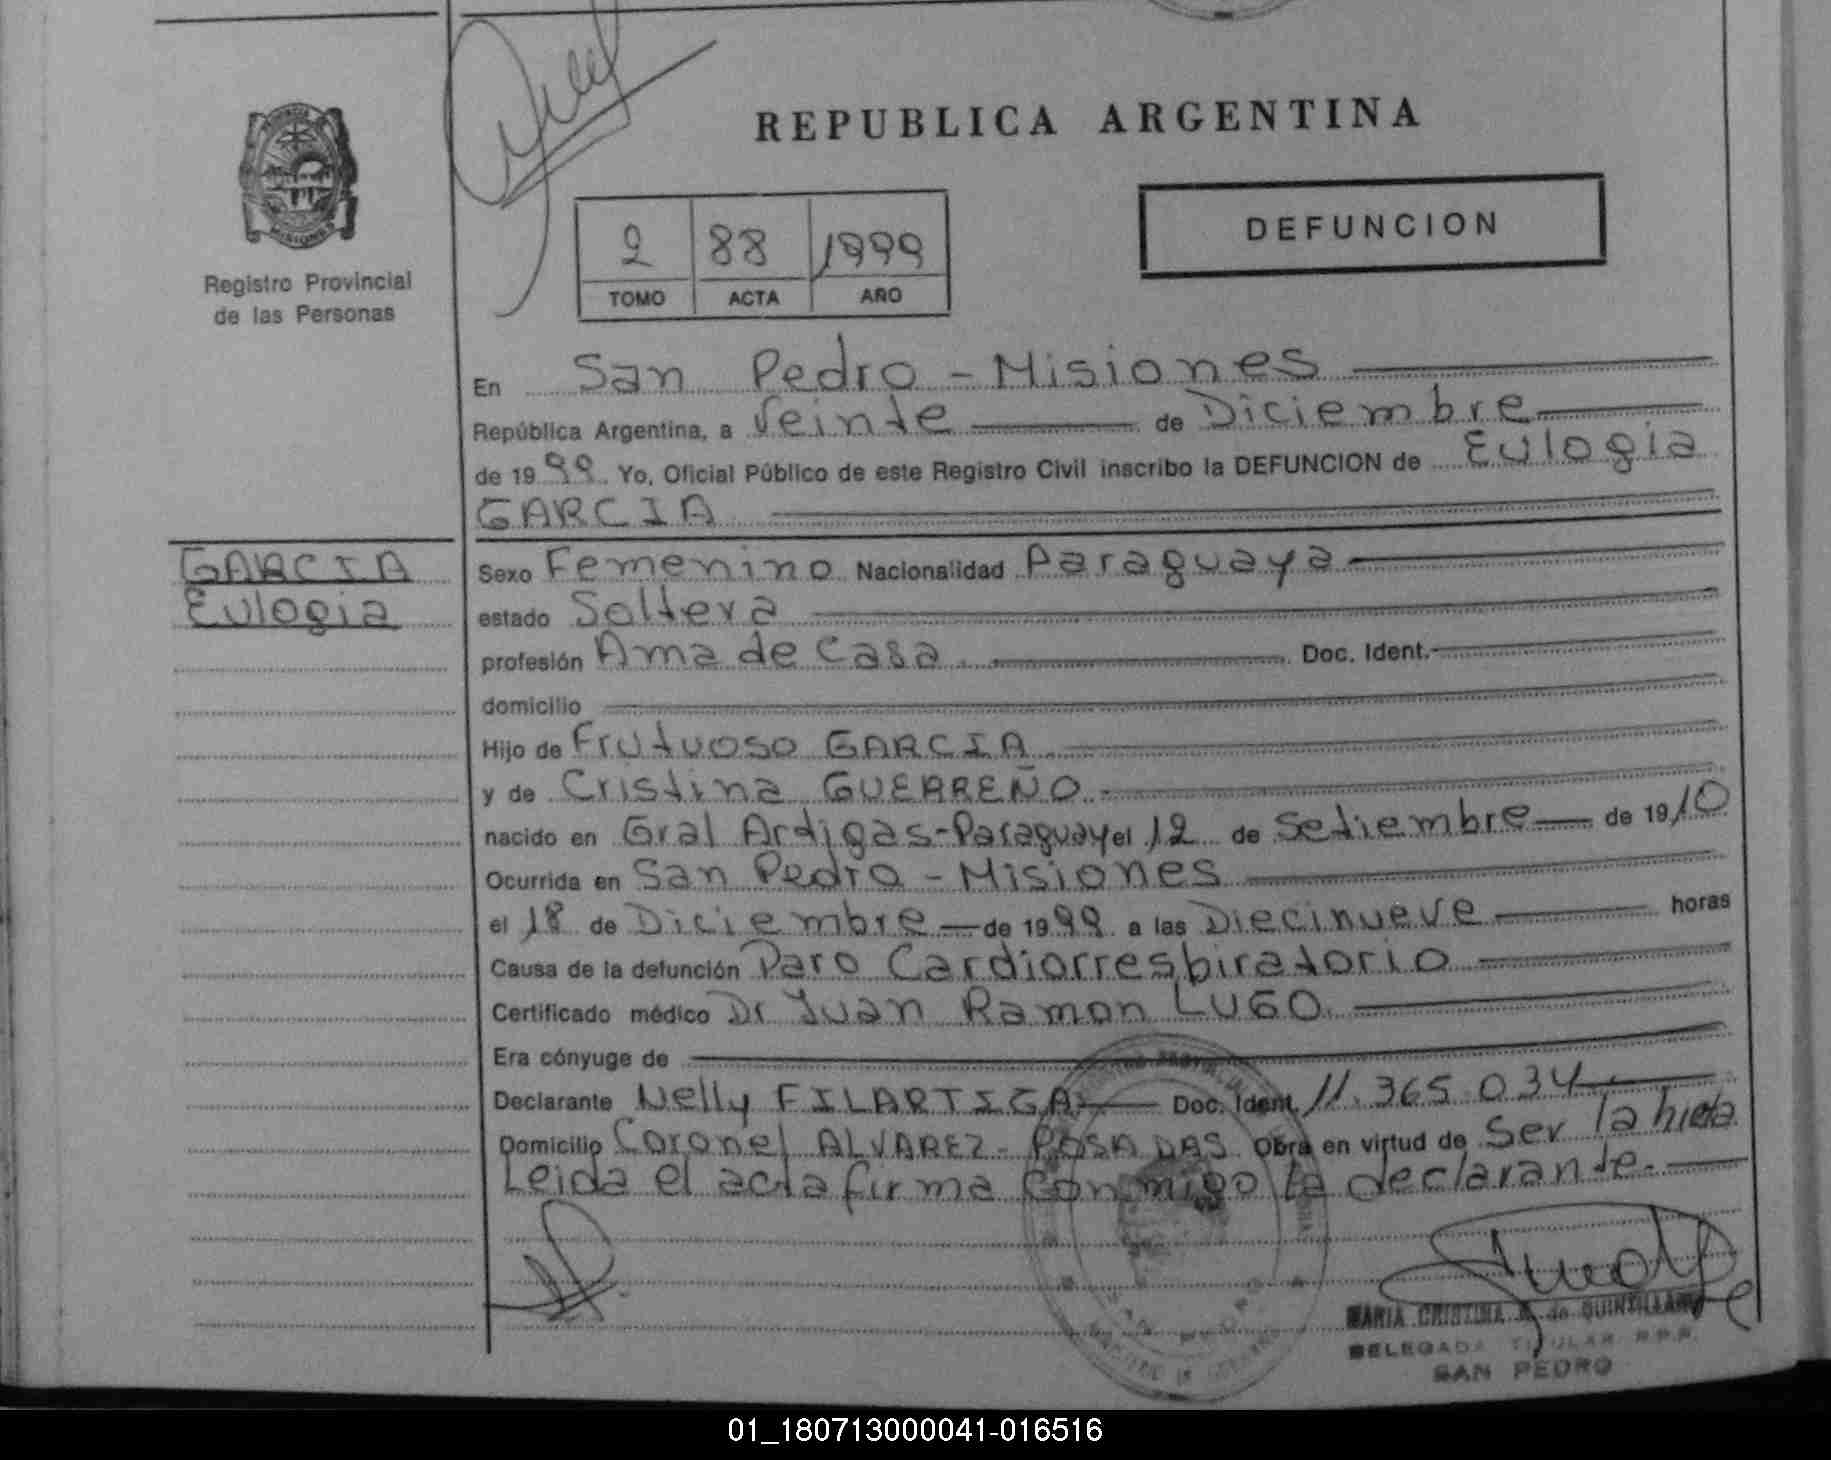 REPUBLICA ARGENTINA
DEFUNCION
2 88 1999
TOMO ACTA AÑO
MISIONES
Registro Provincial
de las Personas
En San Pedro - Misiones
República Argentina, a Veinte de Diciembre
de 1999 Yo, Oficial Público de este Registro Civil inscribo la DEFUNCION de Eulogia
GARCIA
GARCIA
Eulogia
Sexo Femenino Nacionalidad Paraguaya
estado Soltera
profesión Ama de Casa Doc. Ident.
domicilio
Hijo de Frutuoso GARCIA
y de Cristina GUERREÑO
nacido en Gral Artigas-Paraguay el 12 de Setiembre de 1910
Ocurrida en San Pedro - Misiones
el 18 de Diciembre de 1999 a las Diecinueve horas
Causa de la defunción Paro Cardiorrespiratorio
Certificado médico Dr Juan Ramon LUGO
Era cónyuge de
Declarante Nelly FILARTIGA Doc. Ident. 11.365.034
Domicilio Coronel ALVAREZ - POSADAS Obra en virtud de Ser la hija
Leida el acta firma conmigo la declarante.
MARIA CRISTINA de QUINTILLAN
DELEGADA TITULAR R.P.P.
SAN PEDRO
01_180713000041-016516